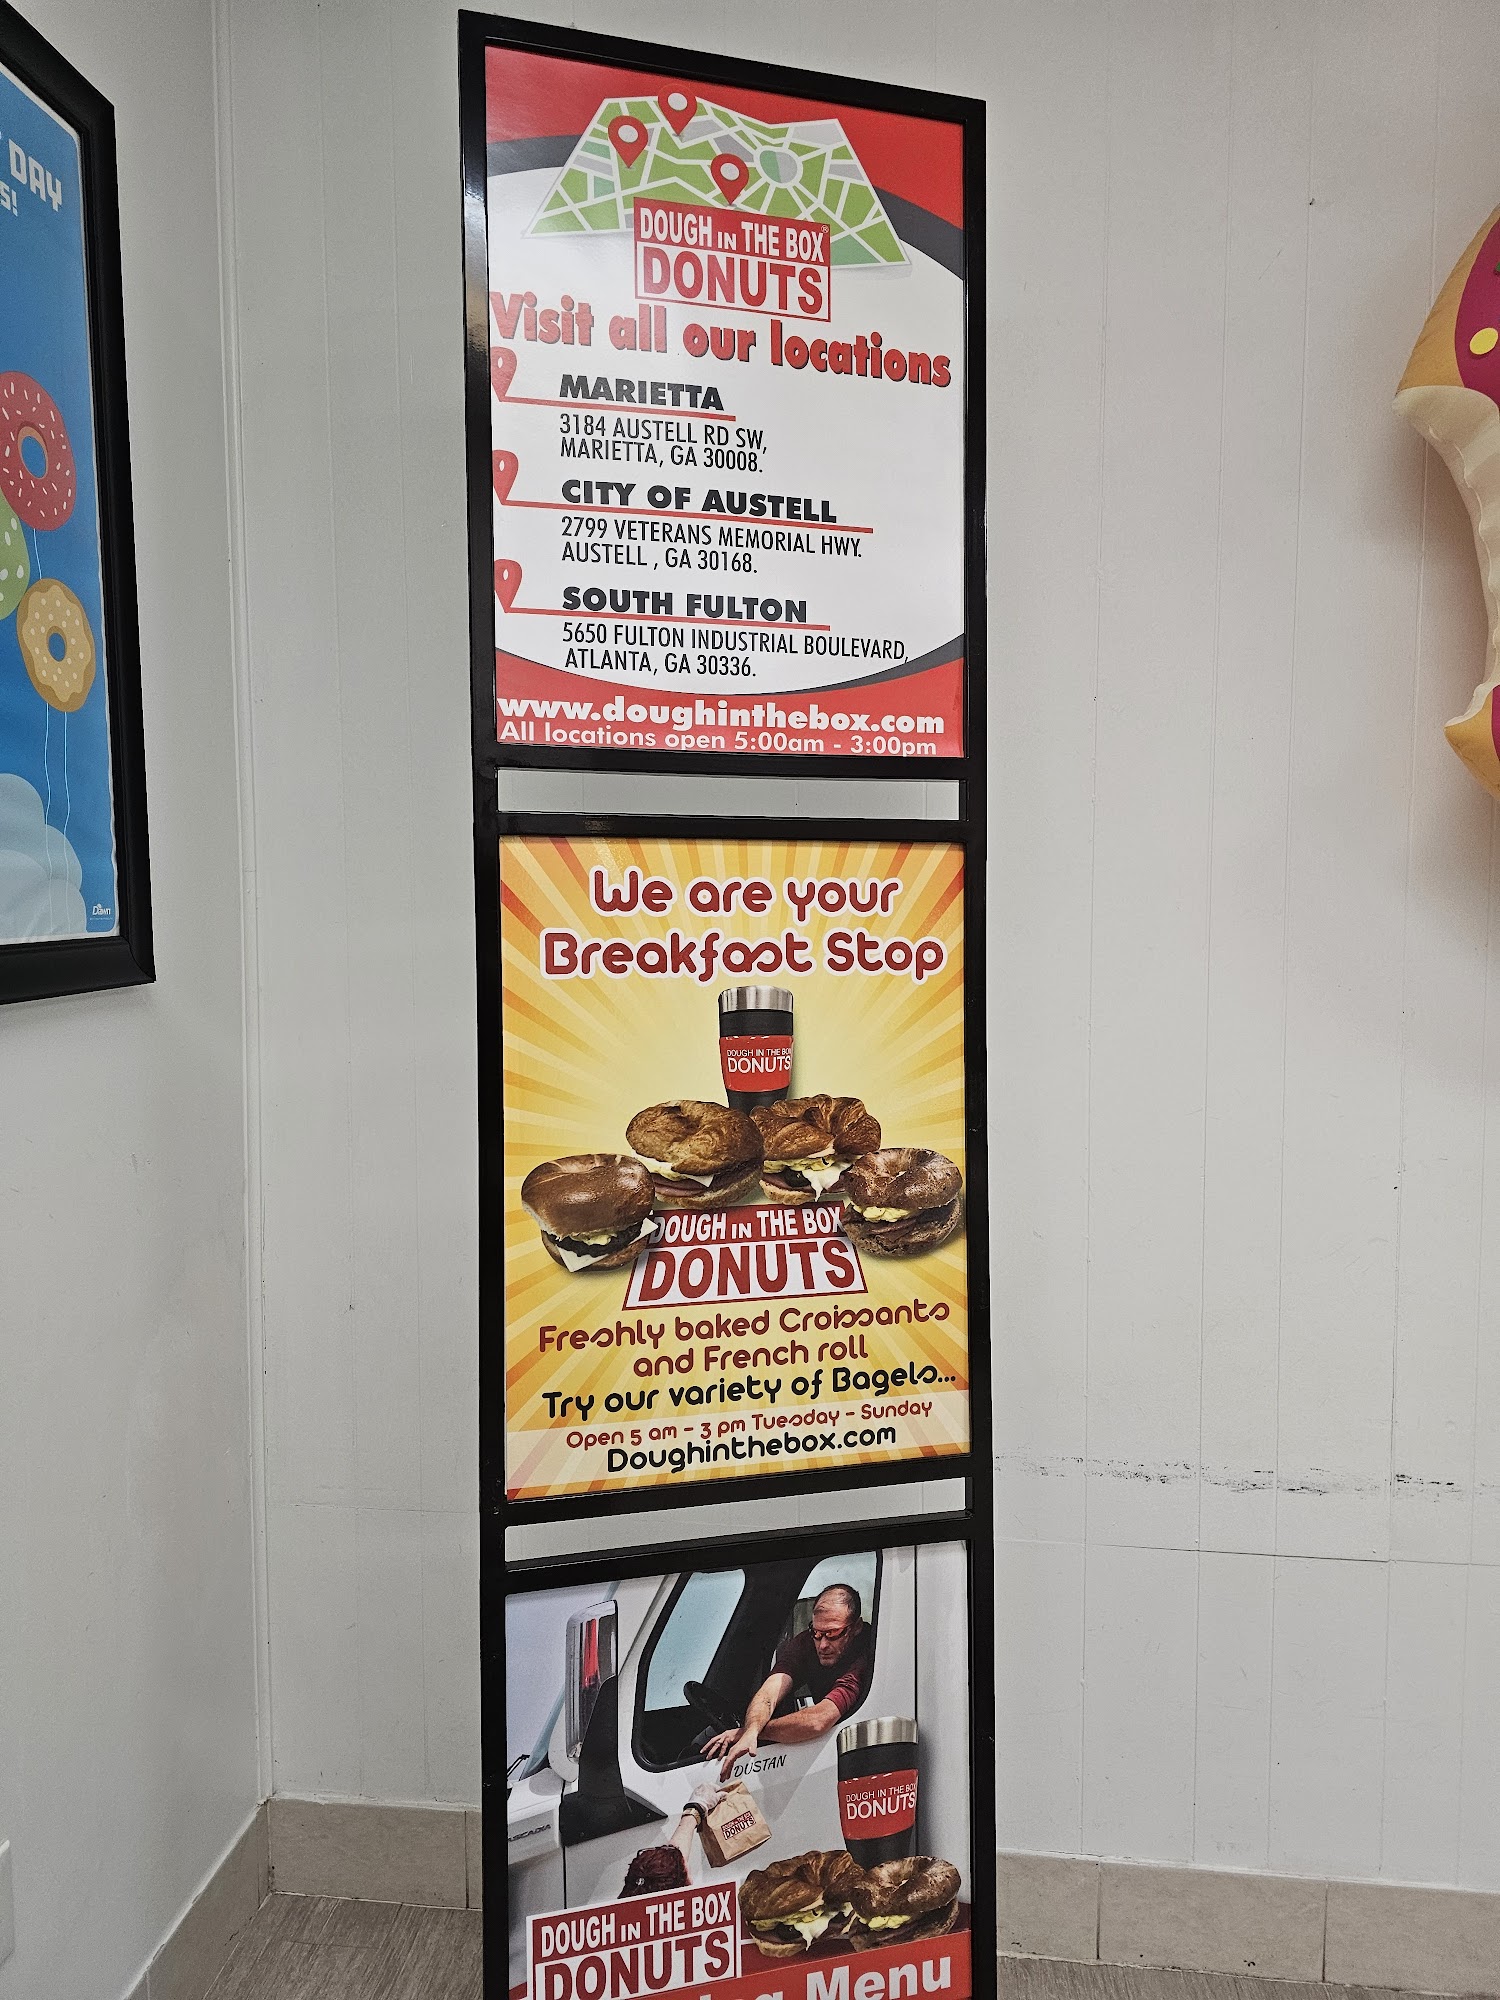 DAY
S!
Dawn
DOUGH IN THE BOX®
DONUTS
Visit all our locations
MARIETTA
3184 AUSTELL RD SW,
MARIETTA, GA 30008.
CITY OF AUSTELL
2799 VETERANS MEMORIAL HWY.
AUSTELL , GA 30168.
SOUTH FULTON
5650 FULTON INDUSTRIAL BOULEVARD,
ATLANTA, GA 30336.
www.doughinthebox.com
All locations open 5:00am - 3:00pm
We are your
Breakfast Stop
DOUGH IN THE BOX
DONUTS
DOUGH IN THE BOX
DONUTS
Freshly baked Croissants
and French roll
Try our variety of Bagels...
Open 5 am - 3 pm Tuesday - Sunday
Doughinthebox.com
DUSTAN
DOUGH IN THE BOX
DONUTS
DONUTS
DOUGH IN THE BOX
DONUTS
Menu